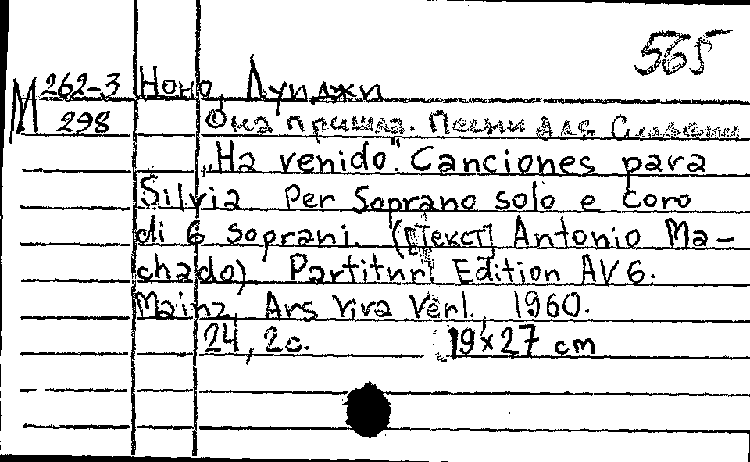 565
М 262-3 Ноно, Луиджи
298 Она пришла. Песни для
"Ha venido". Canciones para
Silvia Per Soprano solo e Coro
di 6 soprani. ([Текст] Antonio Ma-
chado) Partitur. Edition AV 6.
Mainz, Ars Viva Verl., 1960.
24, 2с. 19x27 cm